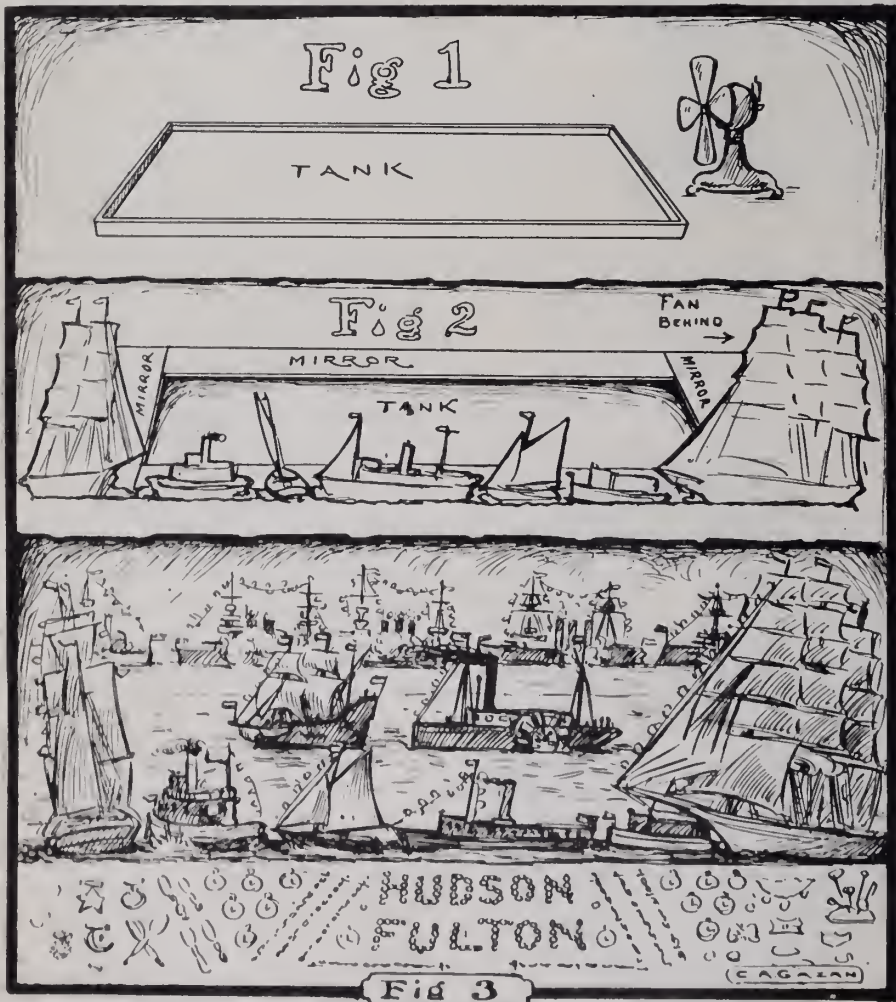 Fig 1
TANK
Fig 2
FAN
BEHIND
MIRROR
MIRROR
MIRROR
TANK
HUDSON
FULTON
C A GAZAN
Fig 3